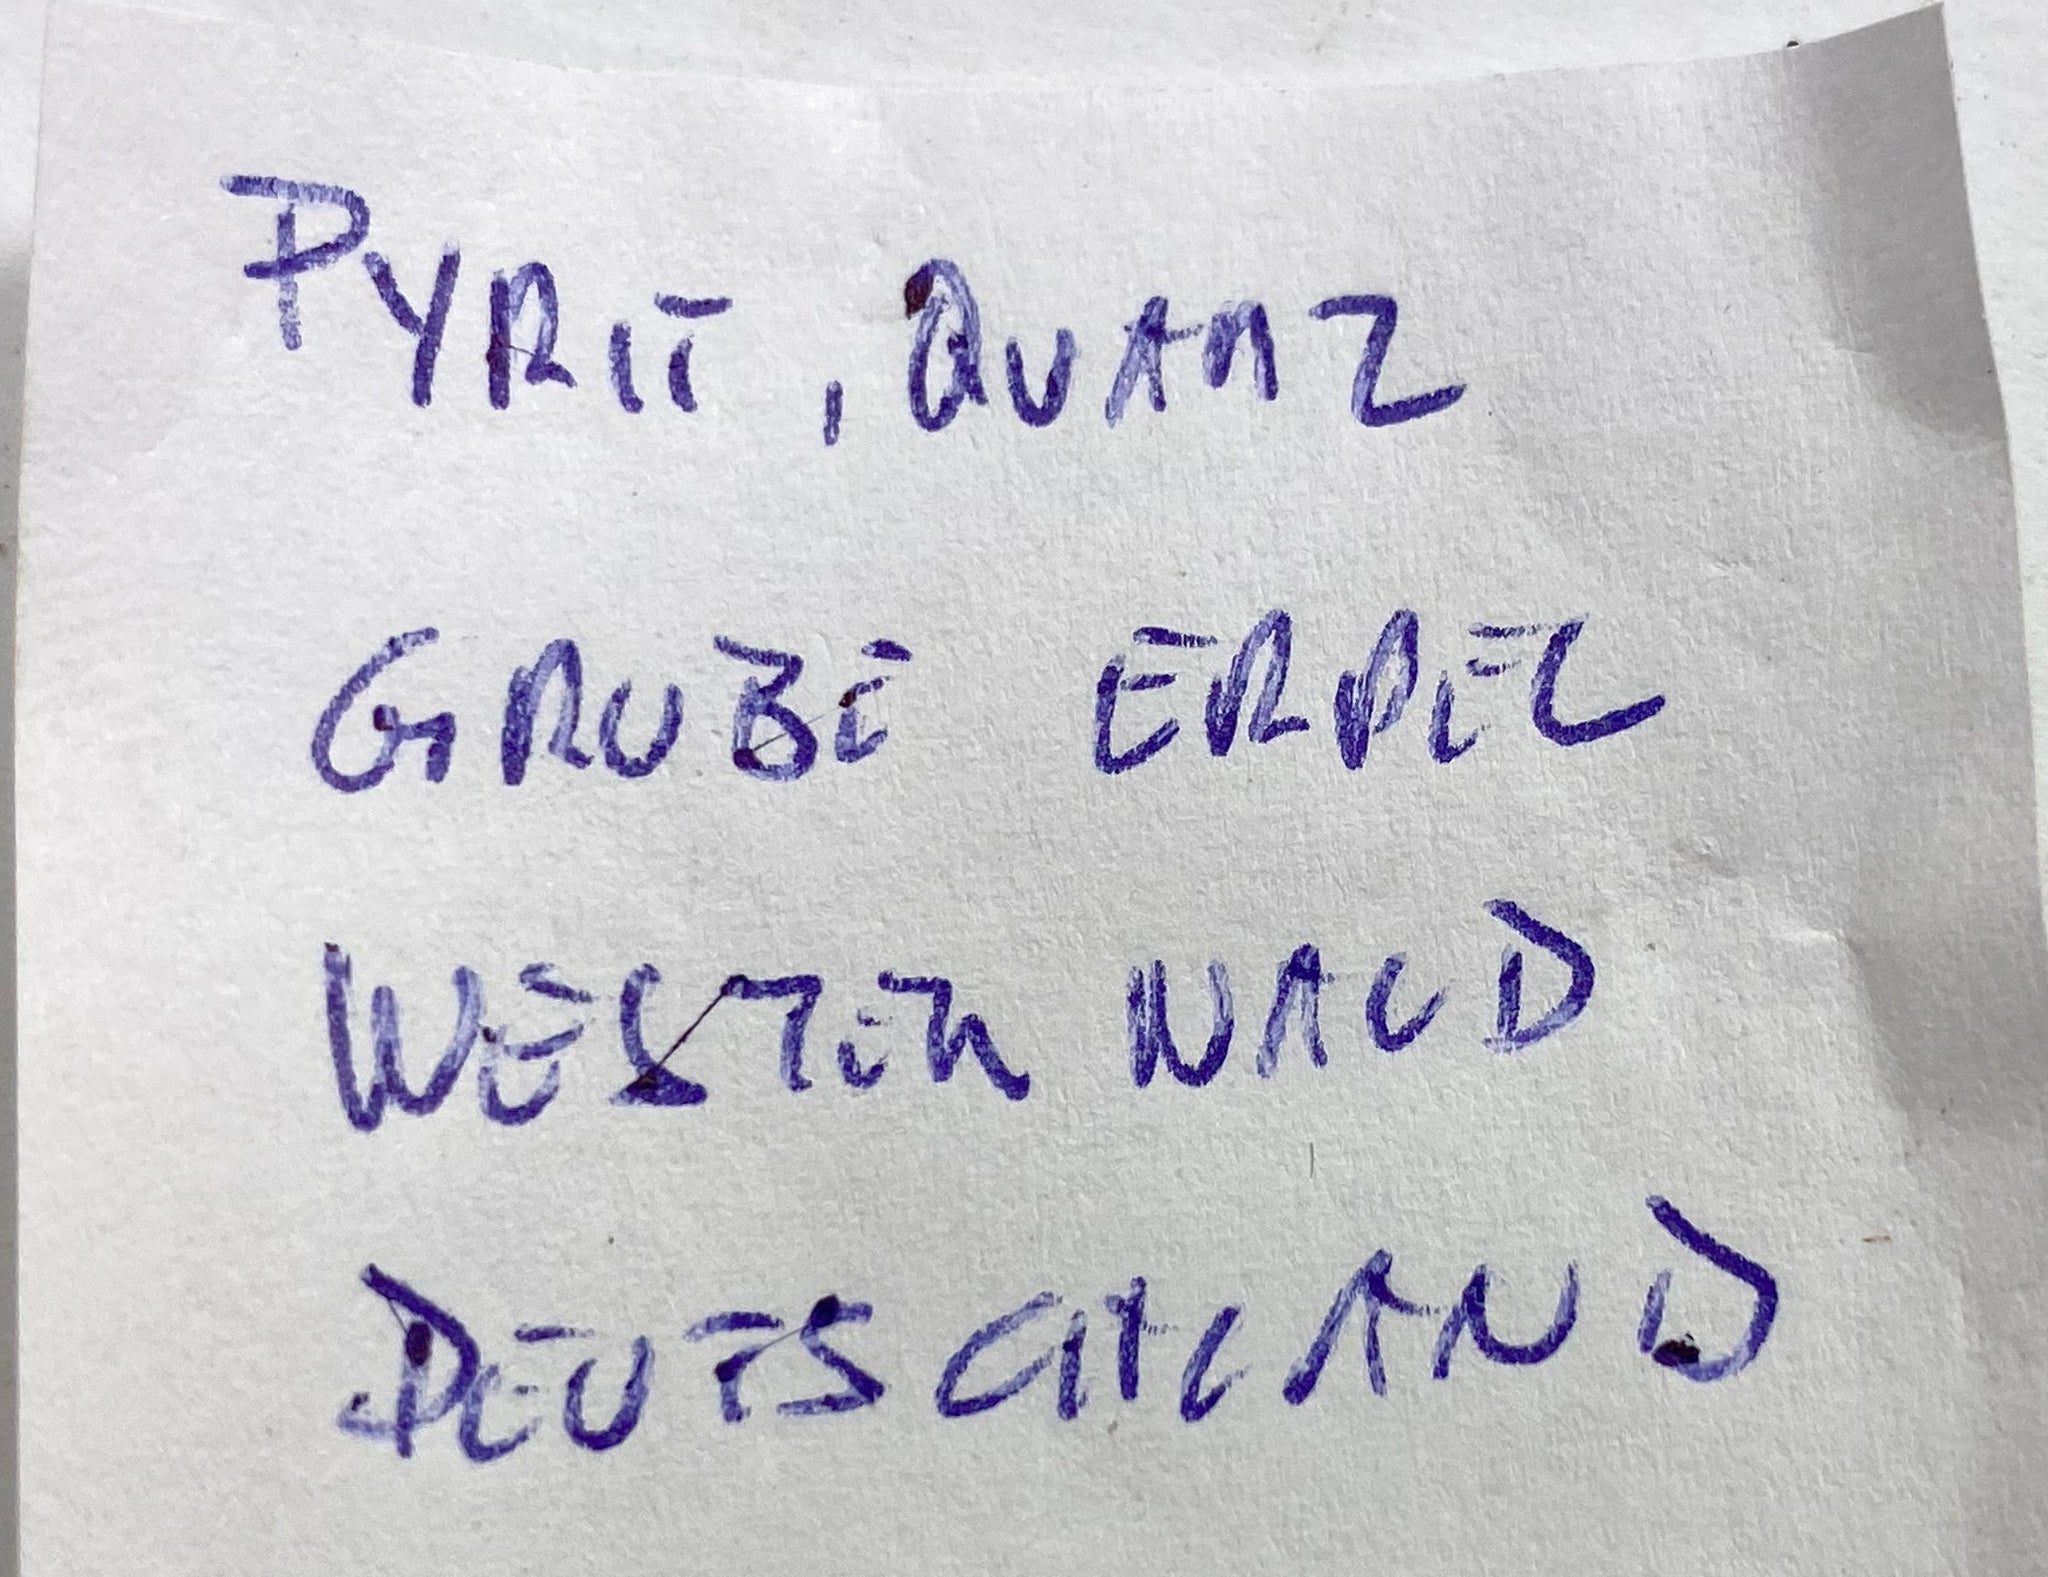 PYRIT, QUARZ
GRUBE ERPEL
WESTERWALD
DEUTSCHLAND